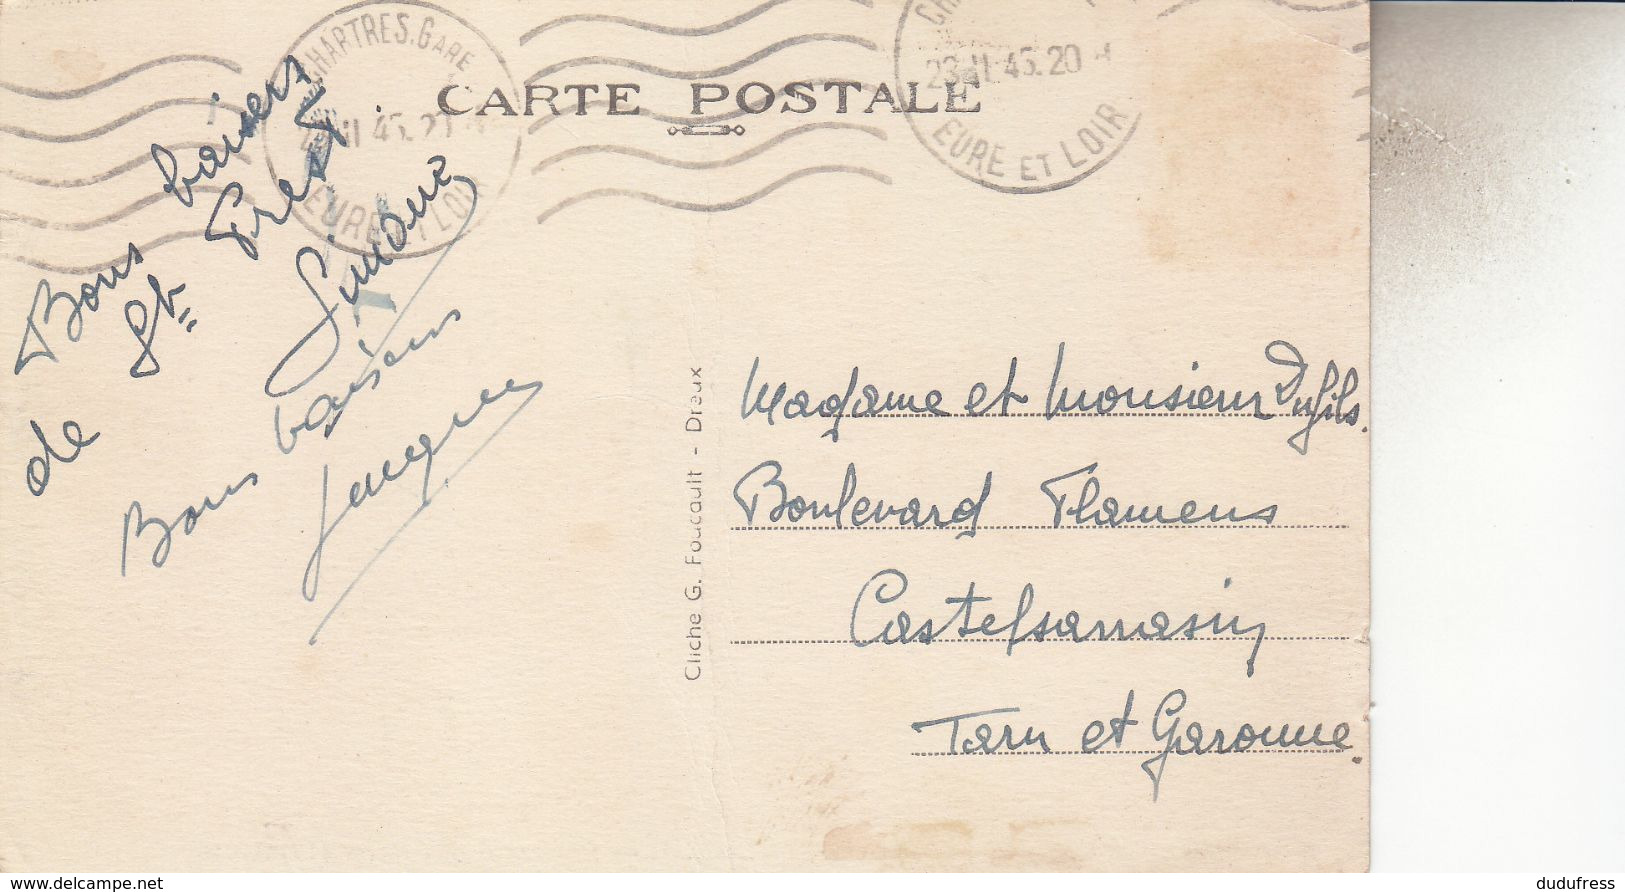 CHARTRES.GARE
EURE ET LOIR
CARTE POSTALE
23 II 45. 20
EURE ET LOIR
Bons baisers
de St. Prest
Simone
Bons baisers
Jacques
Cliche G. Foucault - Dreux
Madame et Monsieur Dufils.
Boulevard Flamens
Castelsarrasin
Tarn et Garonne.
www.delcampe.net
dudufress